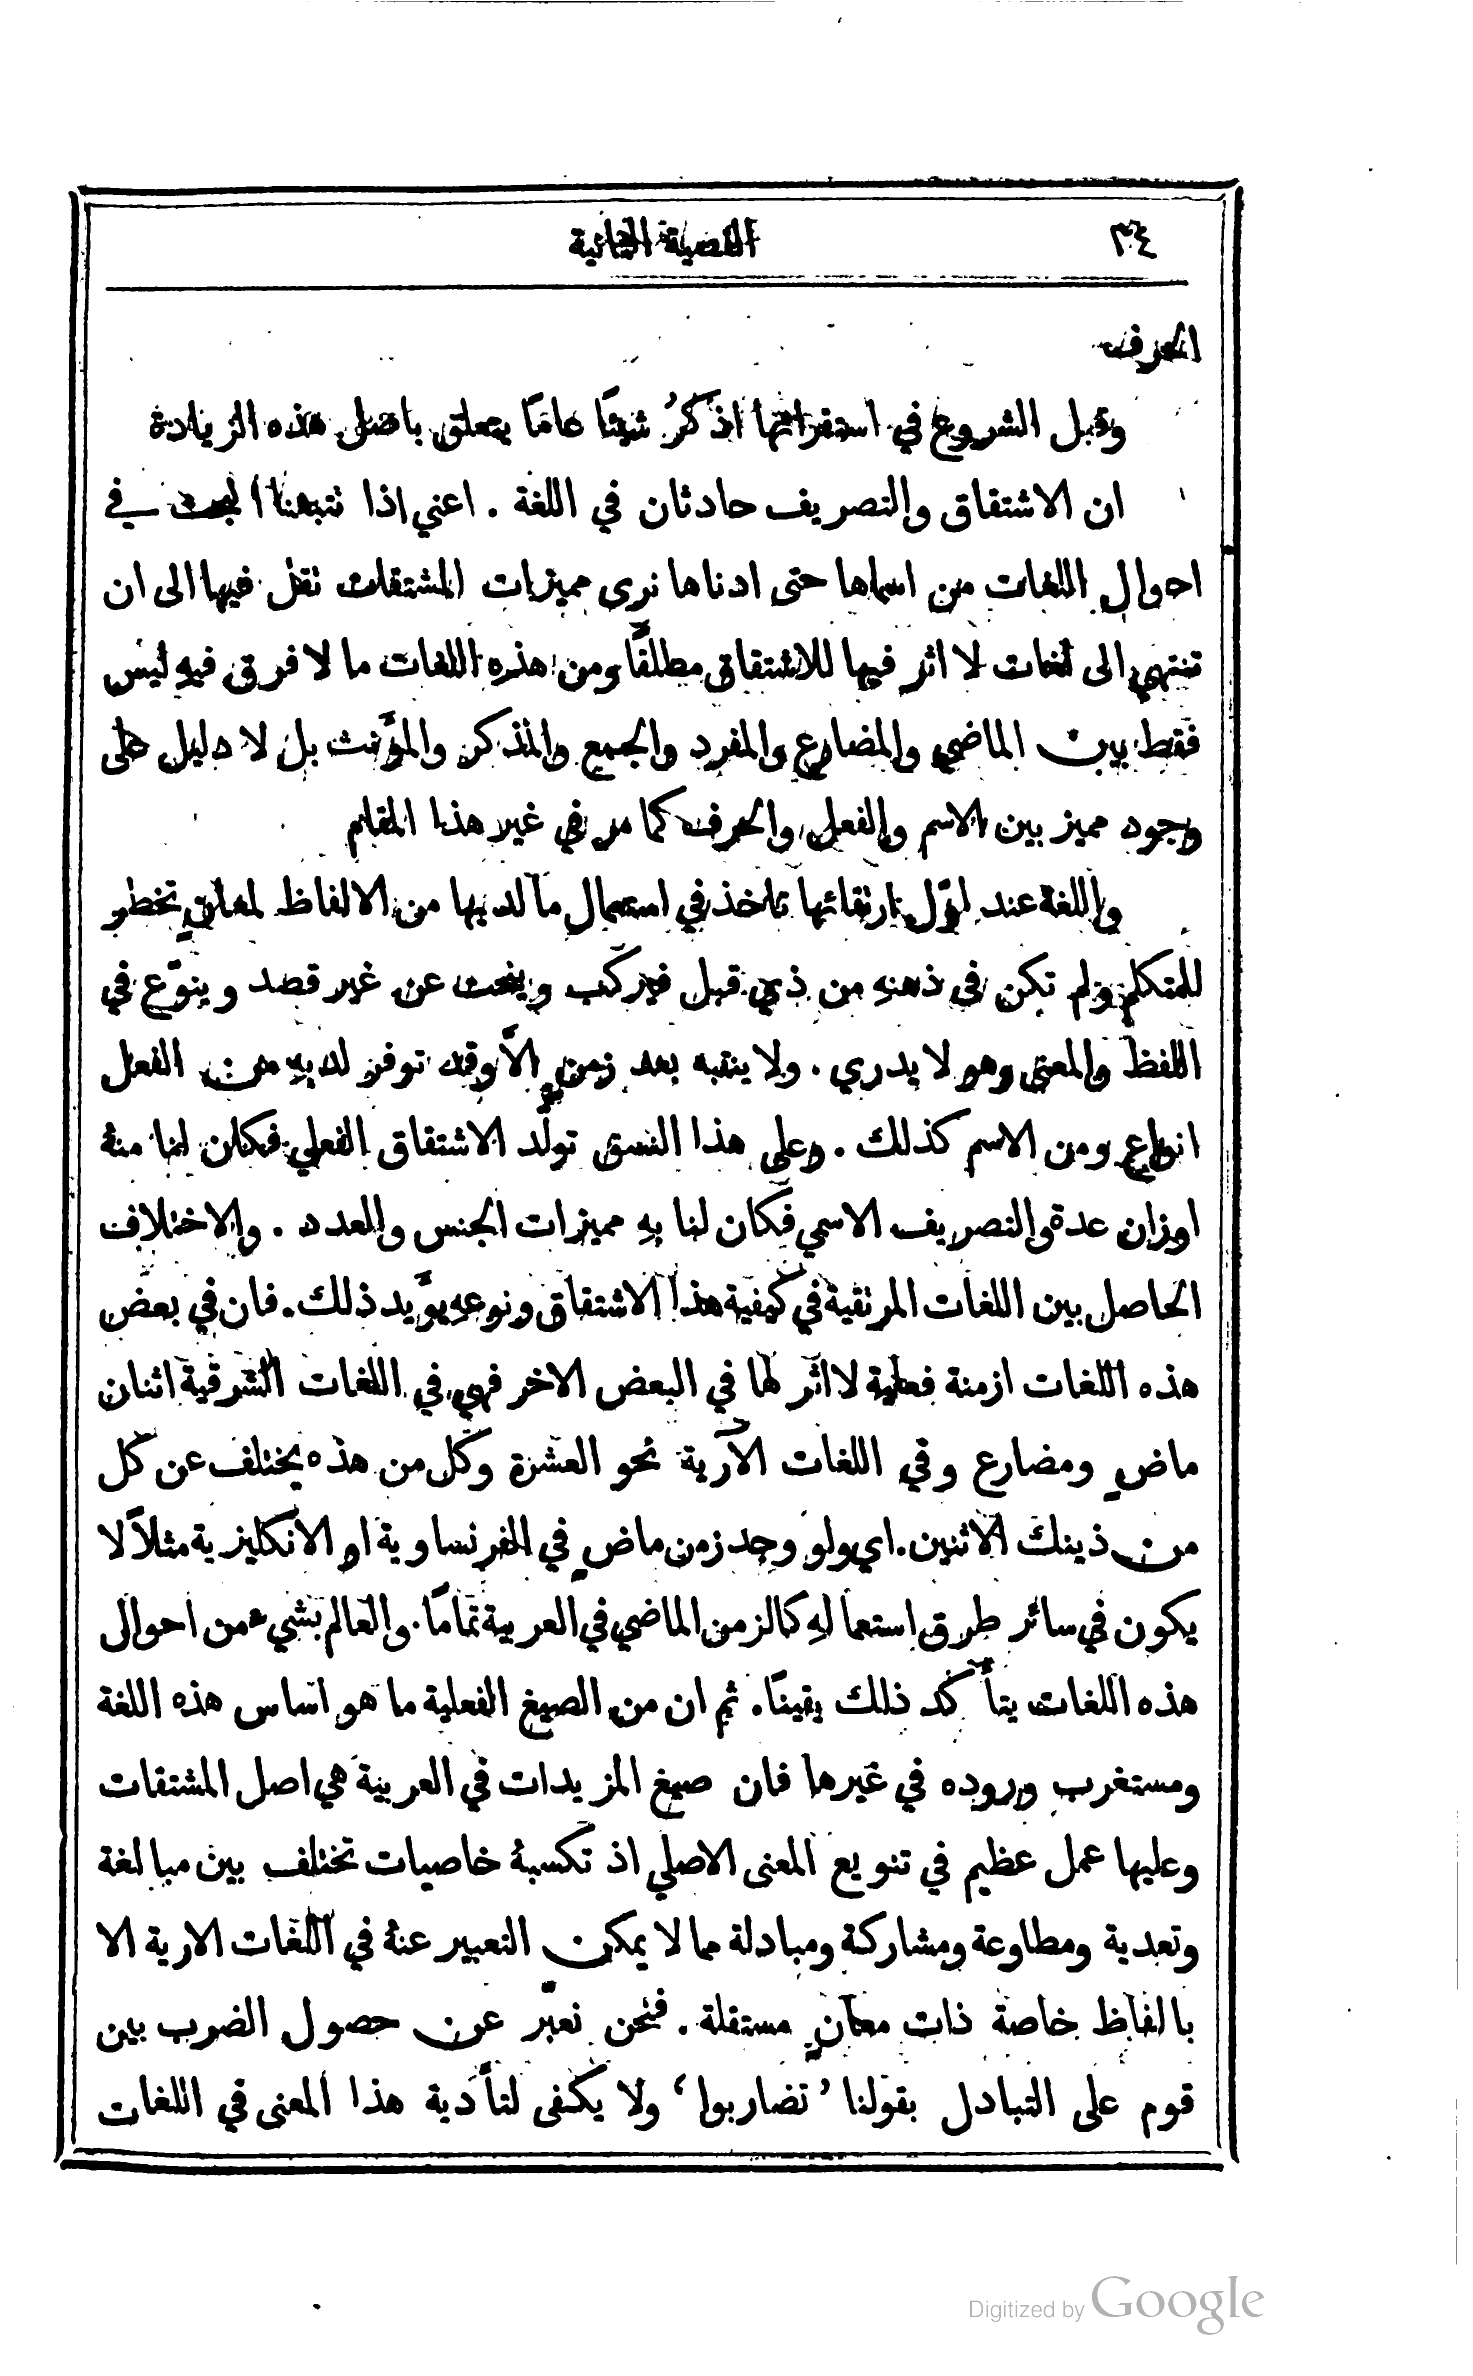 ٣٤
القضية الثانية
الحرف
وقبل الشروع في استقرائها اذكرُ شيئًا عامًا يتعلق باصل هذه الزيادة
ان الاشتقاق والتصريف حادثان في اللغة . اعني اذا تتبعنا البحث في
احوال اللغات من اسماها حتى ادناها نرى مميزات المشتقات تقل فيها الى ان
تنتهي الى لغات لا اثر فيها للاشتقاق مطلقًا ومن هذه اللغات ما لا فرق فيهِ ليس
فقط بين الماضي والمضارع والمفرد والجمع والمذكر والمؤَنث بل لا دليل على
وجود مميز بين الاسم والفعل والحرف كما مر في غير هذا المقام
واللغة عند اوّل ارتقائها تاخذ في استعمال ما لديها من الالفاظ لمعانٍ تخطر
للمتكلم ولم تكن في ذهنهِ من ذي قبل فيركّب وينحت عن غير قصد وينوّع في
اللفظ والمعنى وهو لا يدري . ولا ينتبه بعد زمنٍ الَّا وقد توفر لديهِ من الفعل
انواع ومن الاسم كذلك . وعلى هذا النسق تولّد الاشتقاق الفعلي فكان لنا منهُ
اوزان عدة والتصريف الاسمي فكان لنا بهِ مميزات الجنس والعدد . والاختلاف
الحاصل بين اللغات المرتقية في كيفية هذا الاشتقاق ونوعهِ يوَّيد ذلك . فان في بعض
هذه اللغات ازمنة فعلية لا اثر لها في البعض الاخر فهي في اللغات الشرقية اثنان
ماضٍ ومضارع وفي اللغات الآرية نحو العشرة وكل من هذه يختلف عن كل
من ذينك الاثنين . اي ولو وجد زمن ماضٍ في الفرنساوية او الانكليزية مثلاً لا
يكون في سائر طرق استعمالهِ كالزمن الماضي في العربية تمامًا . والعالم بشيء من احوال
هذه اللغات يتأَكد ذلك يقينًا . ثم ان من الصيغ الفعلية ما هو اساس هذه اللغة
ومستغرب وروده في غيرها فان صيغ المزيدات في العربية هي اصل المشتقات
وعليها عمل عظيم في تنويع المعنى الاصلي اذ تكسبهُ خاصيات تختلف بين مبالغة
وتعدية ومطاوعة ومشاركة ومبادلة مما لا يمكن التعبير عنهُ في اللغات الارية الا
بالفاظ خاصة ذات معانٍ مستقلة . فنحن نعبّر عن حصول الضرب بين
قوم على التبادل بقولنا ’تضاربوا‘ ولا يكفى لتأَدية هذا المعنى في اللغات
Digitized by Google